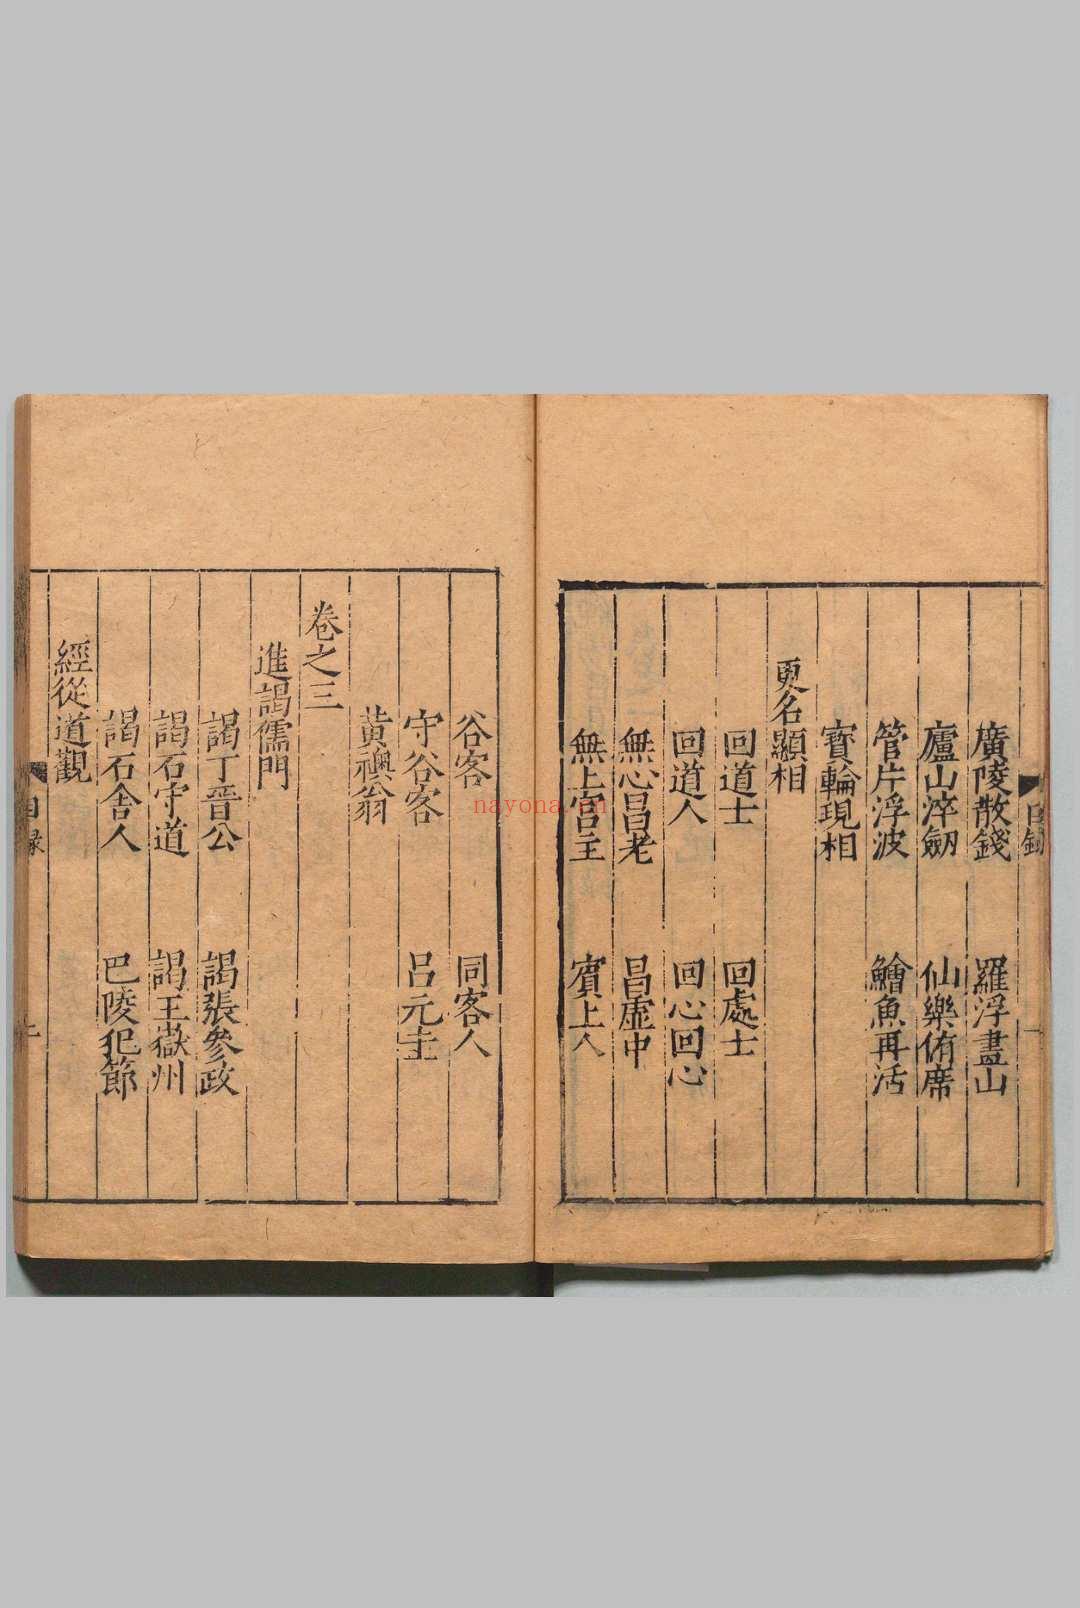 目錄
廣陵散錢 羅浮畫山
廬山淬劒 仙樂侑席
管片浮波 鱠魚再活
寶輪現相
更名顯相
回道士 回處士
回道人 回心回心
無心昌老 昌虛中
無上宮主 賓上人
谷客 同客人
守谷客 呂元圭
黃襖翁
卷之三
進謁儒門
謁丁晉公 謁張參政
謁石守道 謁王嶽州
謁石舍人 巴陵犯節
經從道觀
目録
nayona.cn